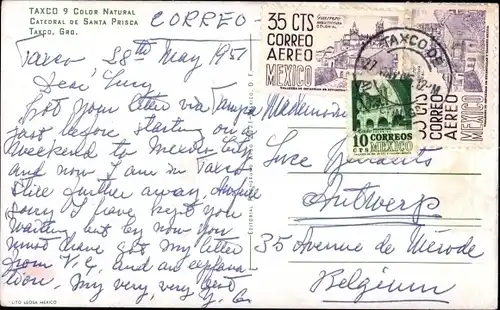 TAXCO 9 COLOR NATURAL
CATEDRAL DE SANTA PRISCA
TAXCO, GRO.
CORREO
Taxco 28th May 1951
Dear Lucy
Got your letter via
just before starting on a
Weekend to Mexico City
and now I am in Taxco
still further away,
sorry I have kept you
waiting but by now you
must have got my letter
from V.C. and an explana
tion. My very, very best
35 CTS
CORREO
AEREO
MEXICO
35 CTS
CORREO
AEREO
MEXICO
TAXCO DE
10 CTS CORREOS
MEXICO
Mademoiselle
Luce
Antwerp
35 Avenue de Mérode
Belgium
LITO LEOSA MEXICO